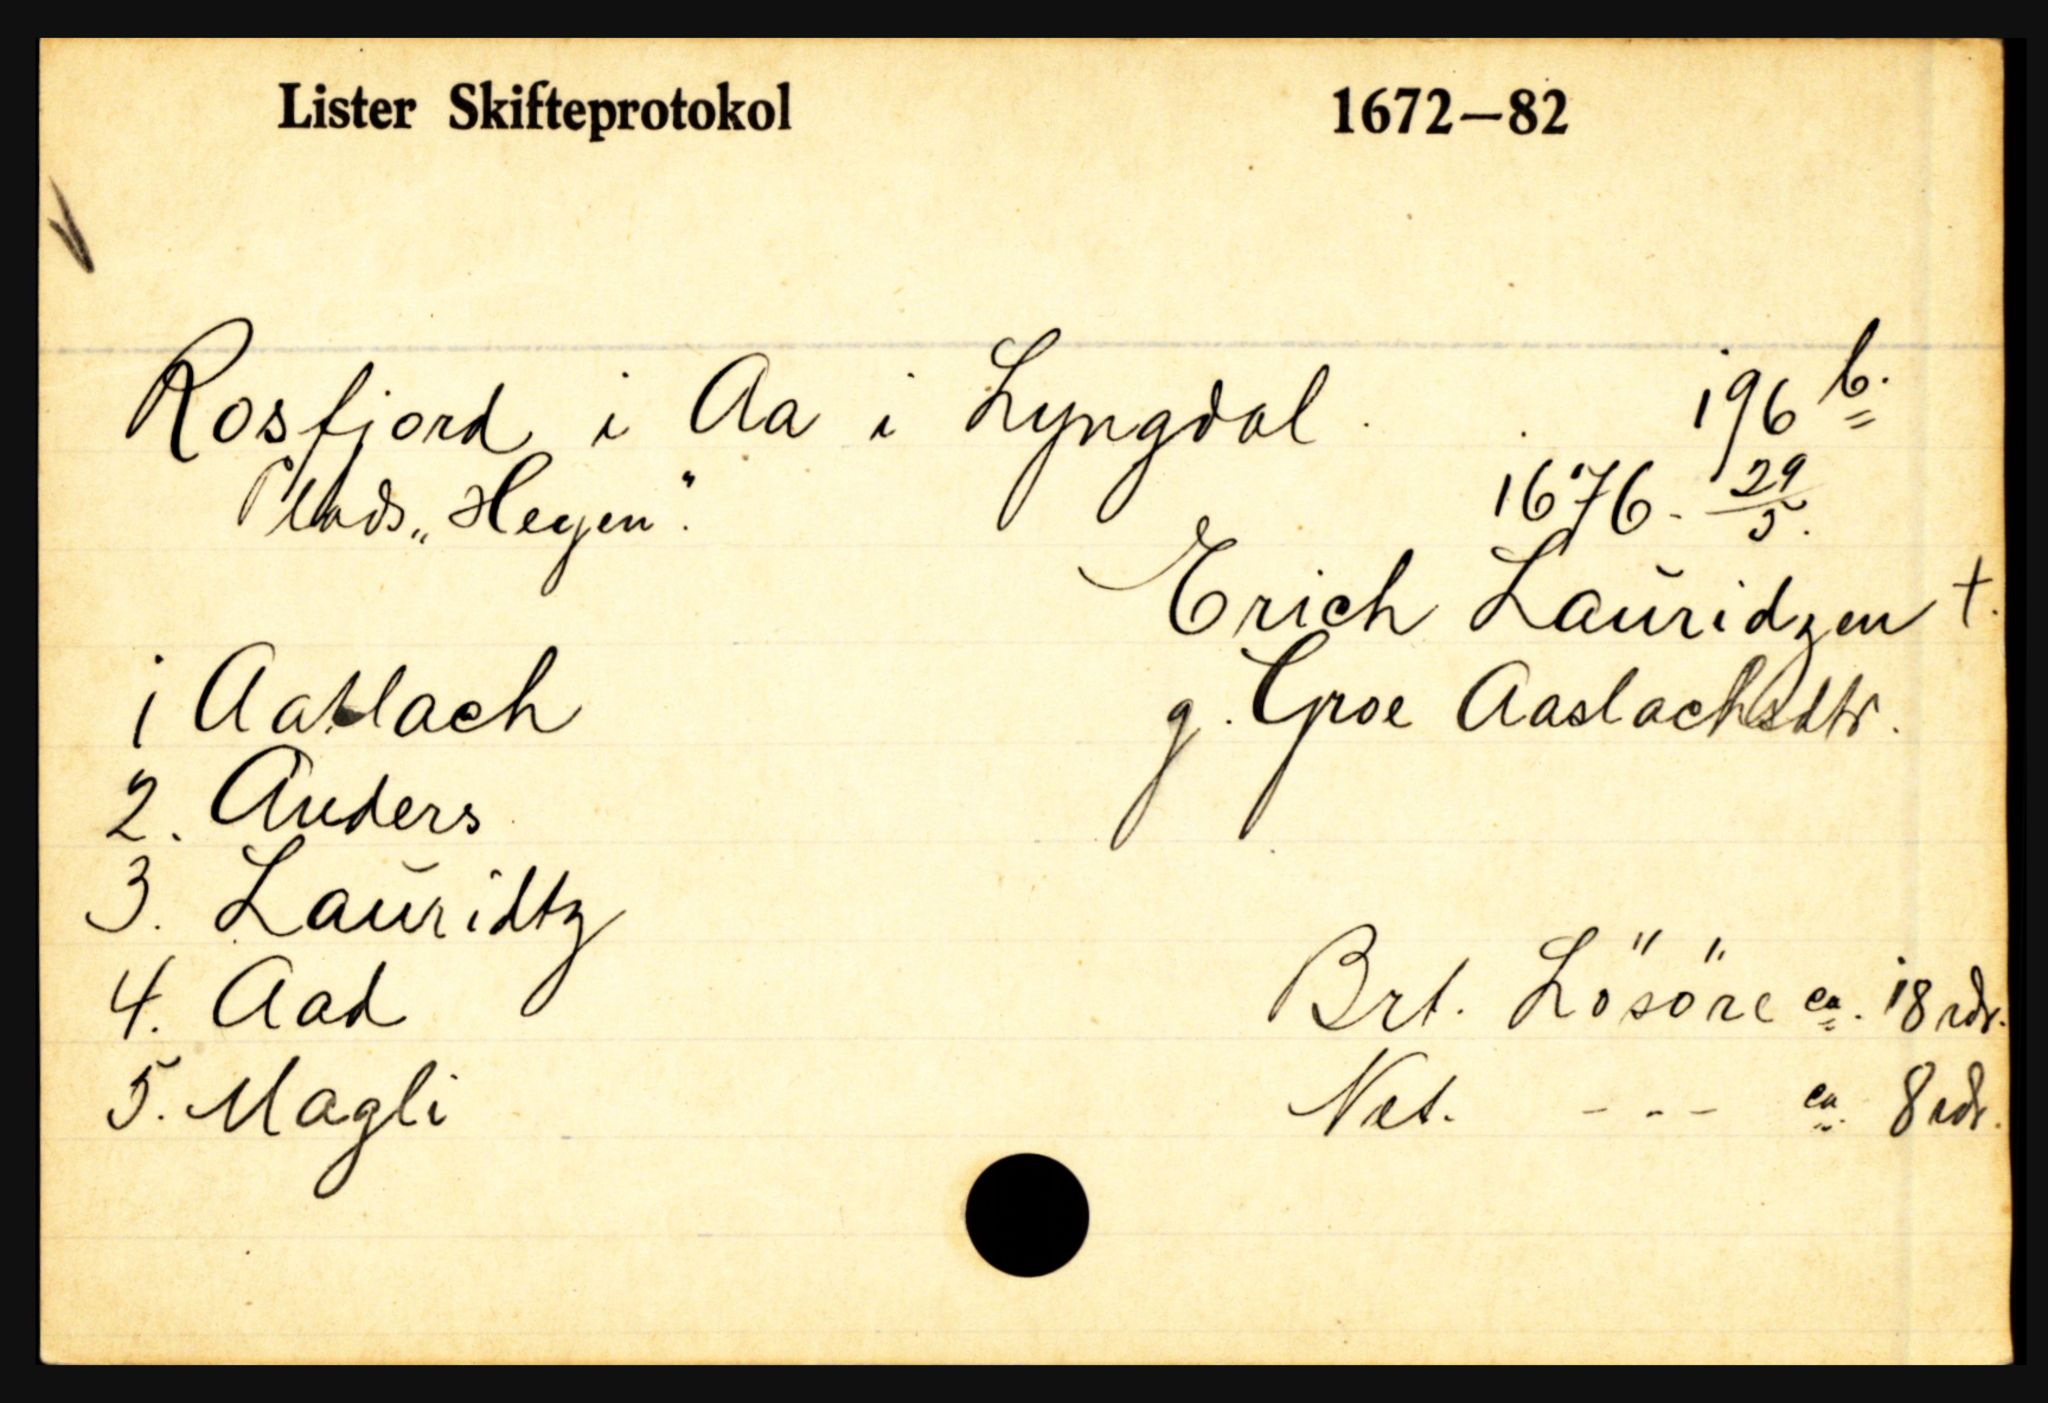 Lister Skifteprotokol 1672–82
Rosfjord i Aa i Lyngdal. 196 b.
Plads „Heyen". 1676. 29/5.
Erich Lauridzen †.
1 Aaslach g. Groe Aaslachsdtr.
2. Anders
3. Lauridtz
4. Aad Brt. Lösöre ca. 18 rdr.
5. Magli Net. - - - ca. 8 rdr.